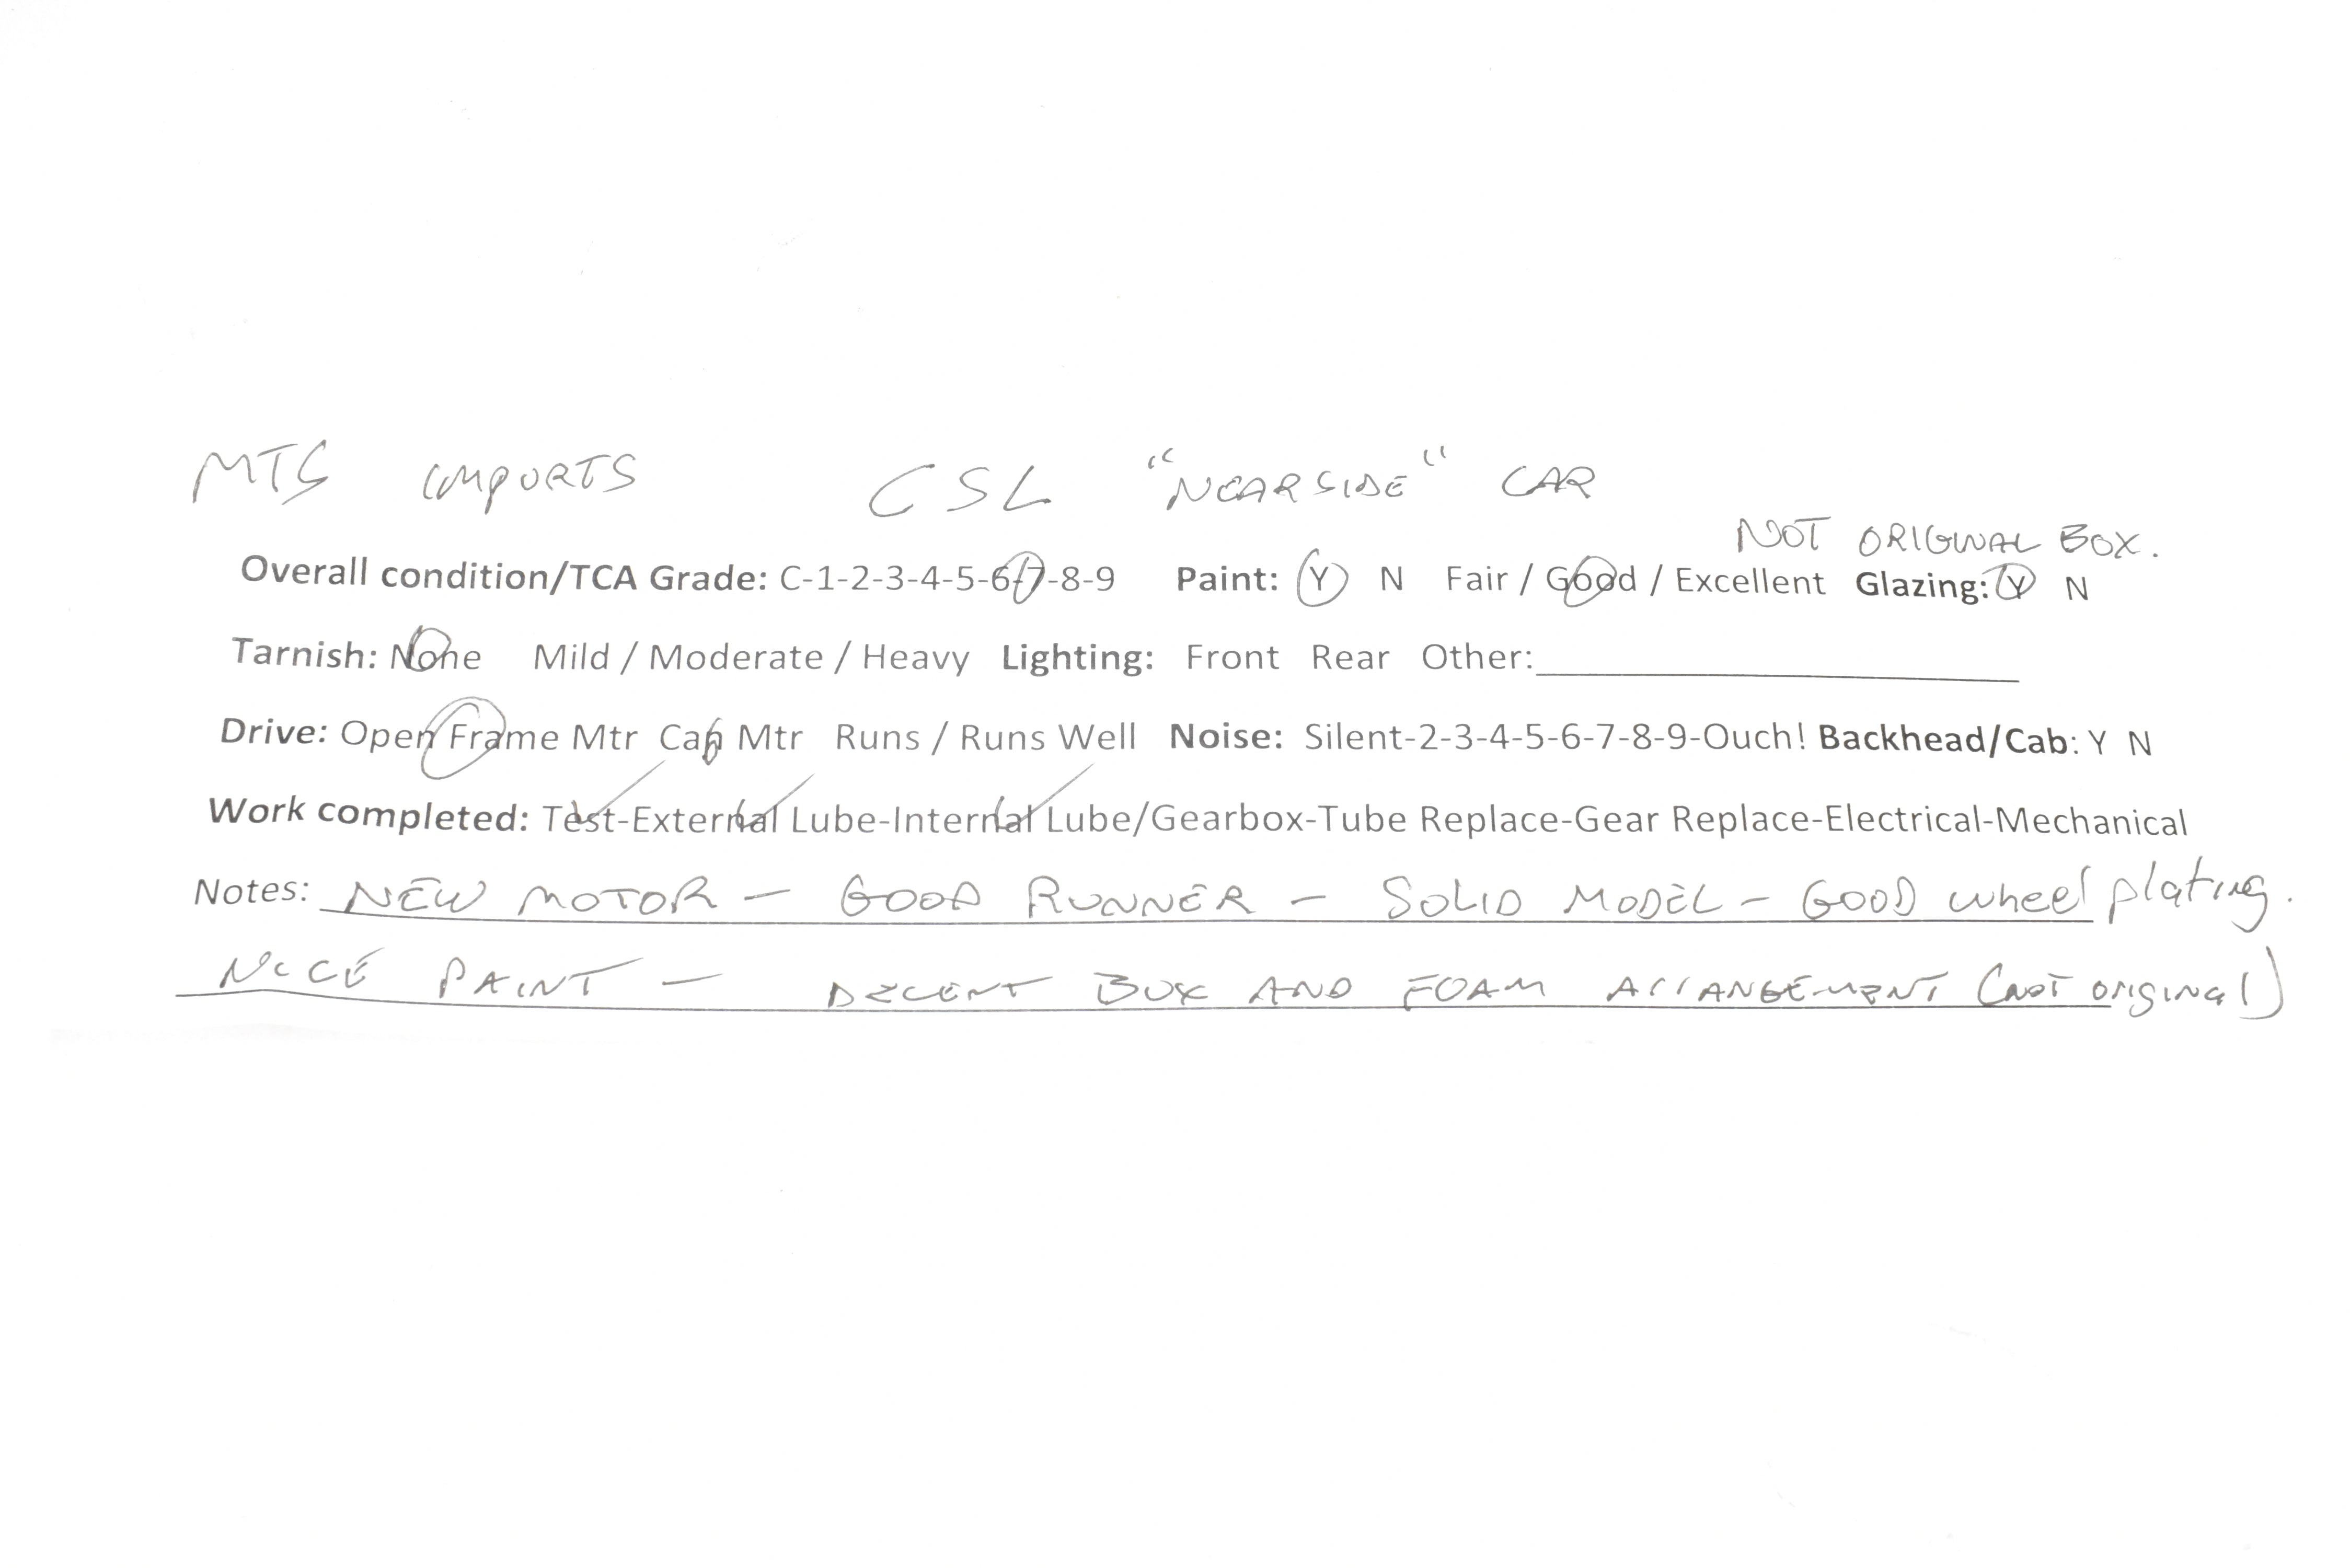 MTS IMPORTS CSL "NEARSIDE" CAR
NOT ORIGINAL BOX.
Overall condition/TCA Grade: C-1-2-3-4-5-6-7-8-9 Paint: Y N Fair / Good / Excellent Glazing: Y N
Tarnish: None Mild / Moderate / Heavy Lighting: Front Rear Other:
Drive: Open Frame Mtr Can Mtr Runs / Runs Well Noise: Silent-2-3-4-5-6-7-8-9-Ouch! Backhead/Cab: Y N
Work completed: Test-External Lube-Internal Lube/Gearbox-Tube Replace-Gear Replace-Electrical-Mechanical
Notes: NEW MOTOR - GOOD RUNNER - SOLID MODEL - GOOD wheel plating.
NICE PAINT - DECENT BOX AND FOAM ARRANGEMENT (NOT original)